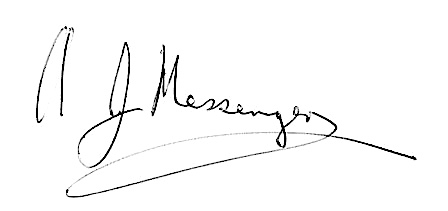 A J Messenger